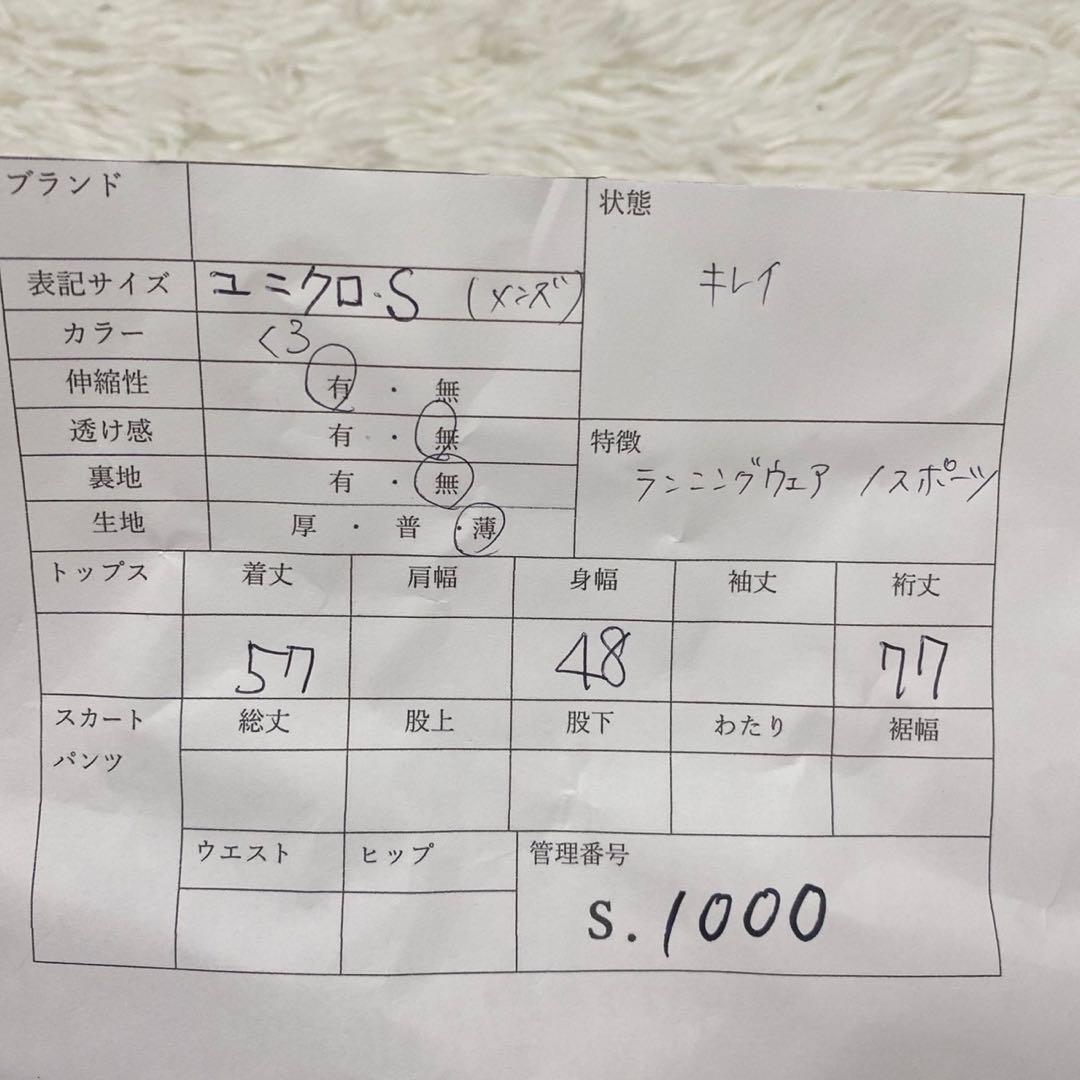 ブランド
状態
キレイ
表記サイズ ユニクロ・S (メンズ)
カラー くろ
伸縮性 有 ・ 無
透け感 有 ・ 無
裏地 有 ・ 無
生地 厚 ・ 普 ・ 薄
特徴
ランニングウェア / スポーツ
トップス 着丈 肩幅 身幅 袖丈 裄丈
57 48 77
スカート 総丈 股上 股下 わたり 裾幅
パンツ
ウエスト ヒップ 管理番号
S.1000